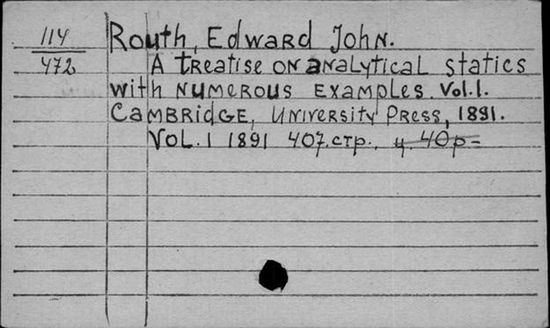 114
472
Routh, Edward John.
A treatise on analytical statics
with numerous examples. Vol.1.
Cambridge, University Press, 1891.
Vol. 1 1891 407.стр., ц. 40р=